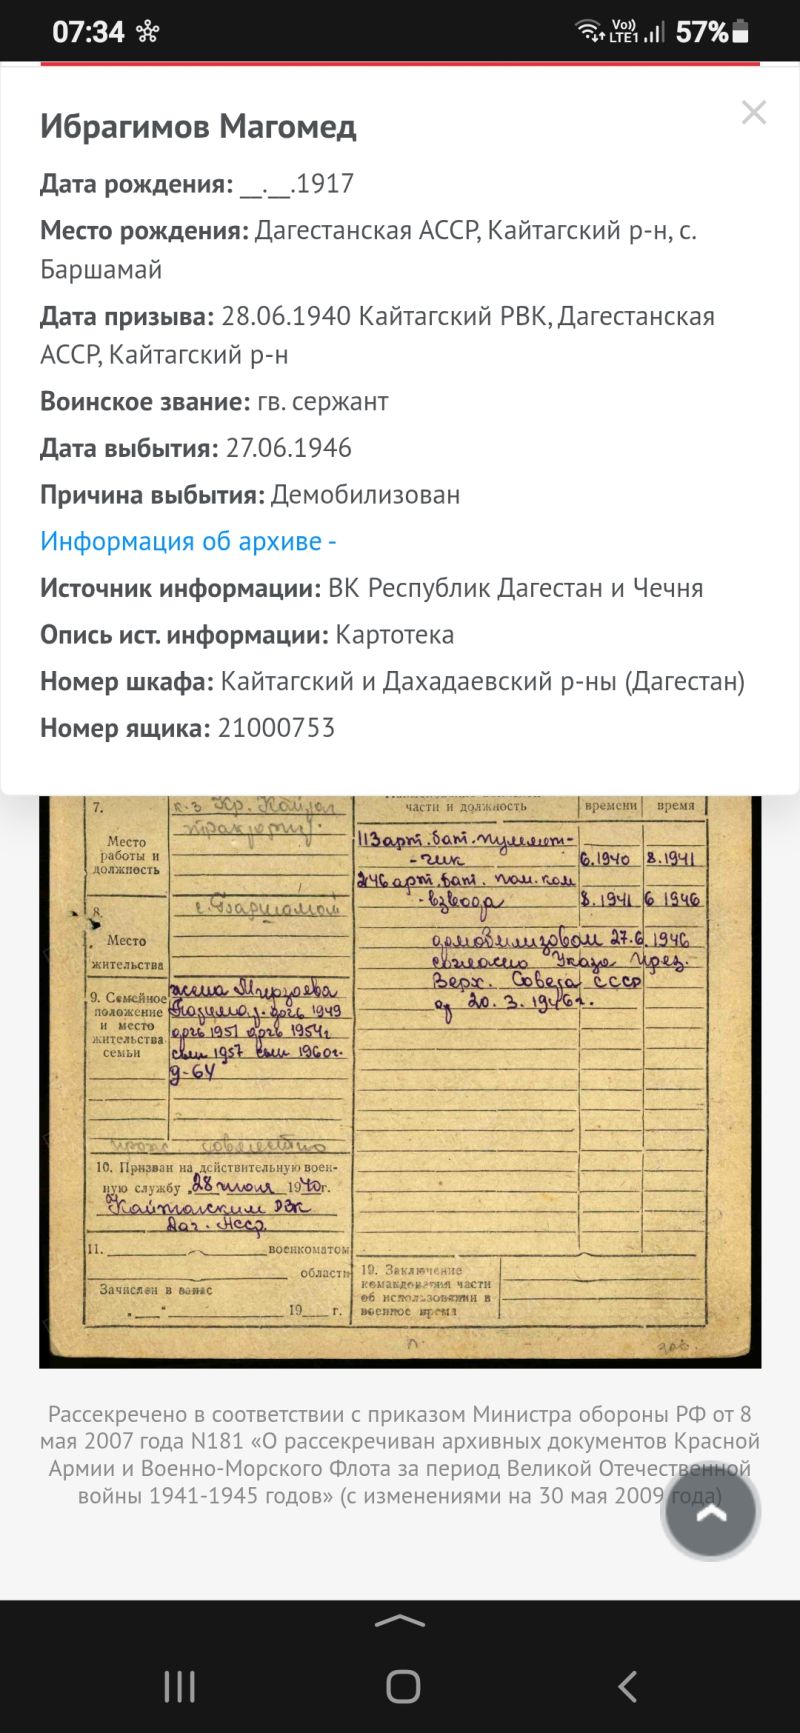 07:34
Vo))
LTE1
57%
Ибрагимов Магомед
Дата рождения: __.__.1917
Место рождения: Дагестанская АССР, Кайтагский р-н, с.
Баршамай
Дата призыва: 28.06.1940 Кайтагский РВК, Дагестанская
АССР, Кайтагский р-н
Воинское звание: гв. сержант
Дата выбытия: 27.06.1946
Причина выбытия: Демобилизован
Информация об архиве -
Источник информации: ВК Республик Дагестан и Чечня
Опись ист. информации: Картотека
Номер шкафа: Кайтагский и Дахадаевский р-ны (Дагестан)
Номер ящика: 21000753
7.
Место
работы и
должность
к-з Кр.
тракторист
8.
Место
жительства
с. Баршамай
9. Семейное
положение
и место
жительства
семьи
жена Мирзаева
дочь 1949
дочь 1951 дочь 1954г
сын 1957 сын 1960г.
д-64
совместно
10. Призван на действительную воен-
ную службу „28 июня 1940г.
Кайтагским РВК
Даг. АССР
11. военкоматом
области
Зачислен в запас
„ “ 19 г.
части и должность
времени
время
113 арт. бат. пулемет-
-чик
6.1940
8.1941
246 арт. бат. пом. ком
-взвода
8.1941
6 1946
демобилизован 27.6.1946
согласно Указа През.
Верх. Совета СССР
от 20.3.1946г.
19. Заключение
командования части
об использовании в
военное время
Рассекречено в соответствии с приказом Министра обороны РФ от 8
мая 2007 года N181 «О рассекречиван архивных документов Красной
Армии и Военно-Морского Флота за период Великой Отечественной
войны 1941-1945 годов» (с изменениями на 30 мая 2009 года)